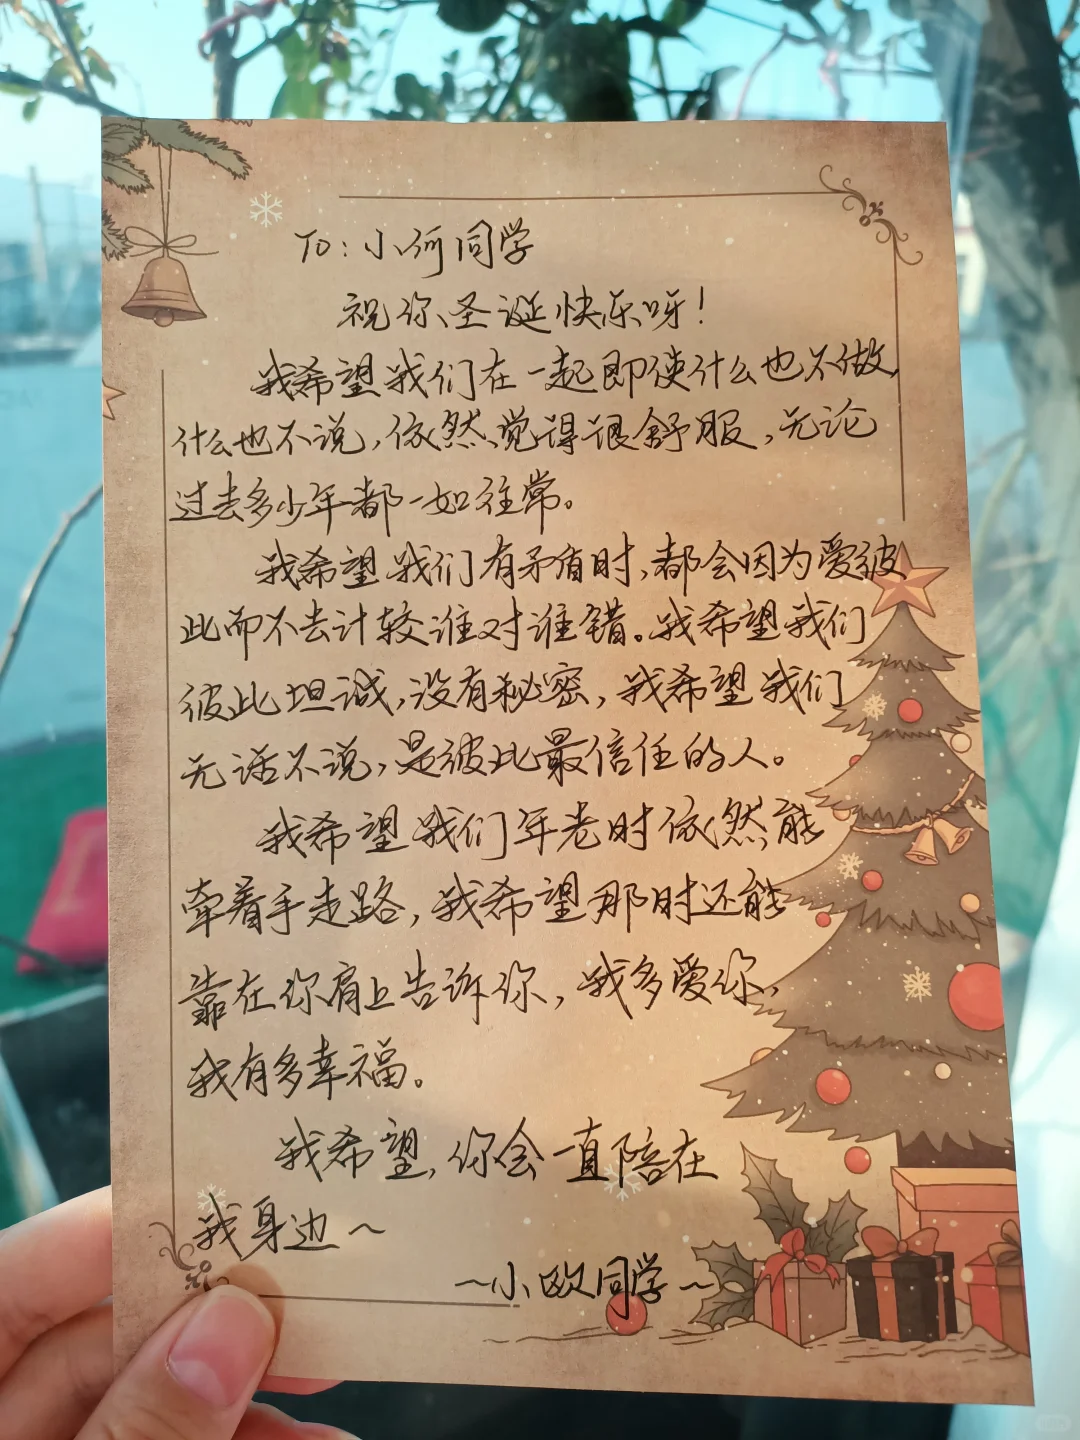 TO：小何同学
祝你圣诞快乐呀！
我希望我们在一起即使什么也不做，
什么也不说，依然觉得很舒服，无论
过去多少年都一如往常。
我希望我们有矛盾时，都会因为爱彼
此而不去计较谁对谁错。我希望我们
彼此坦诚，没有秘密，我希望我们
无话不说，是彼此最信任的人。
我希望我们年老时依然能
牵着手走路，我希望那时还能
靠在你肩上告诉你，我多爱你，
我有多幸福。
我希望，你会一直陪在
我身边～
～小欧同学～